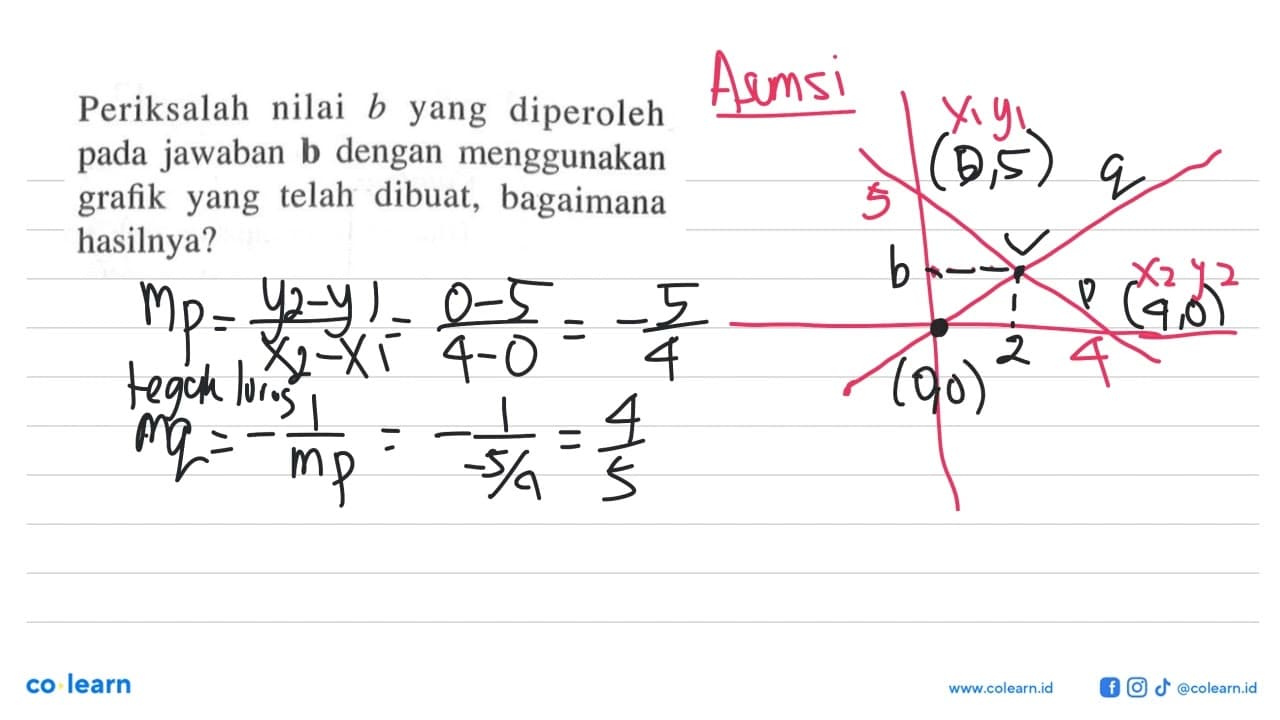 Periksalah nilai b yang diperoleh
pada jawaban b dengan menggunakan
grafik yang telah dibuat, bagaimana
hasilnya?
Asumsi
x1 y1
(0,5)
q
5
b
p
x2 y2
(4,0)
2
4
(0,0)
mp = y2-y1/x2-x1 = 0-5/4-0 = -5/4
tegak lurus
mq = -1/mp = -1/-5/4 = 4/5
co learn
www.colearn.id
@colearn.id